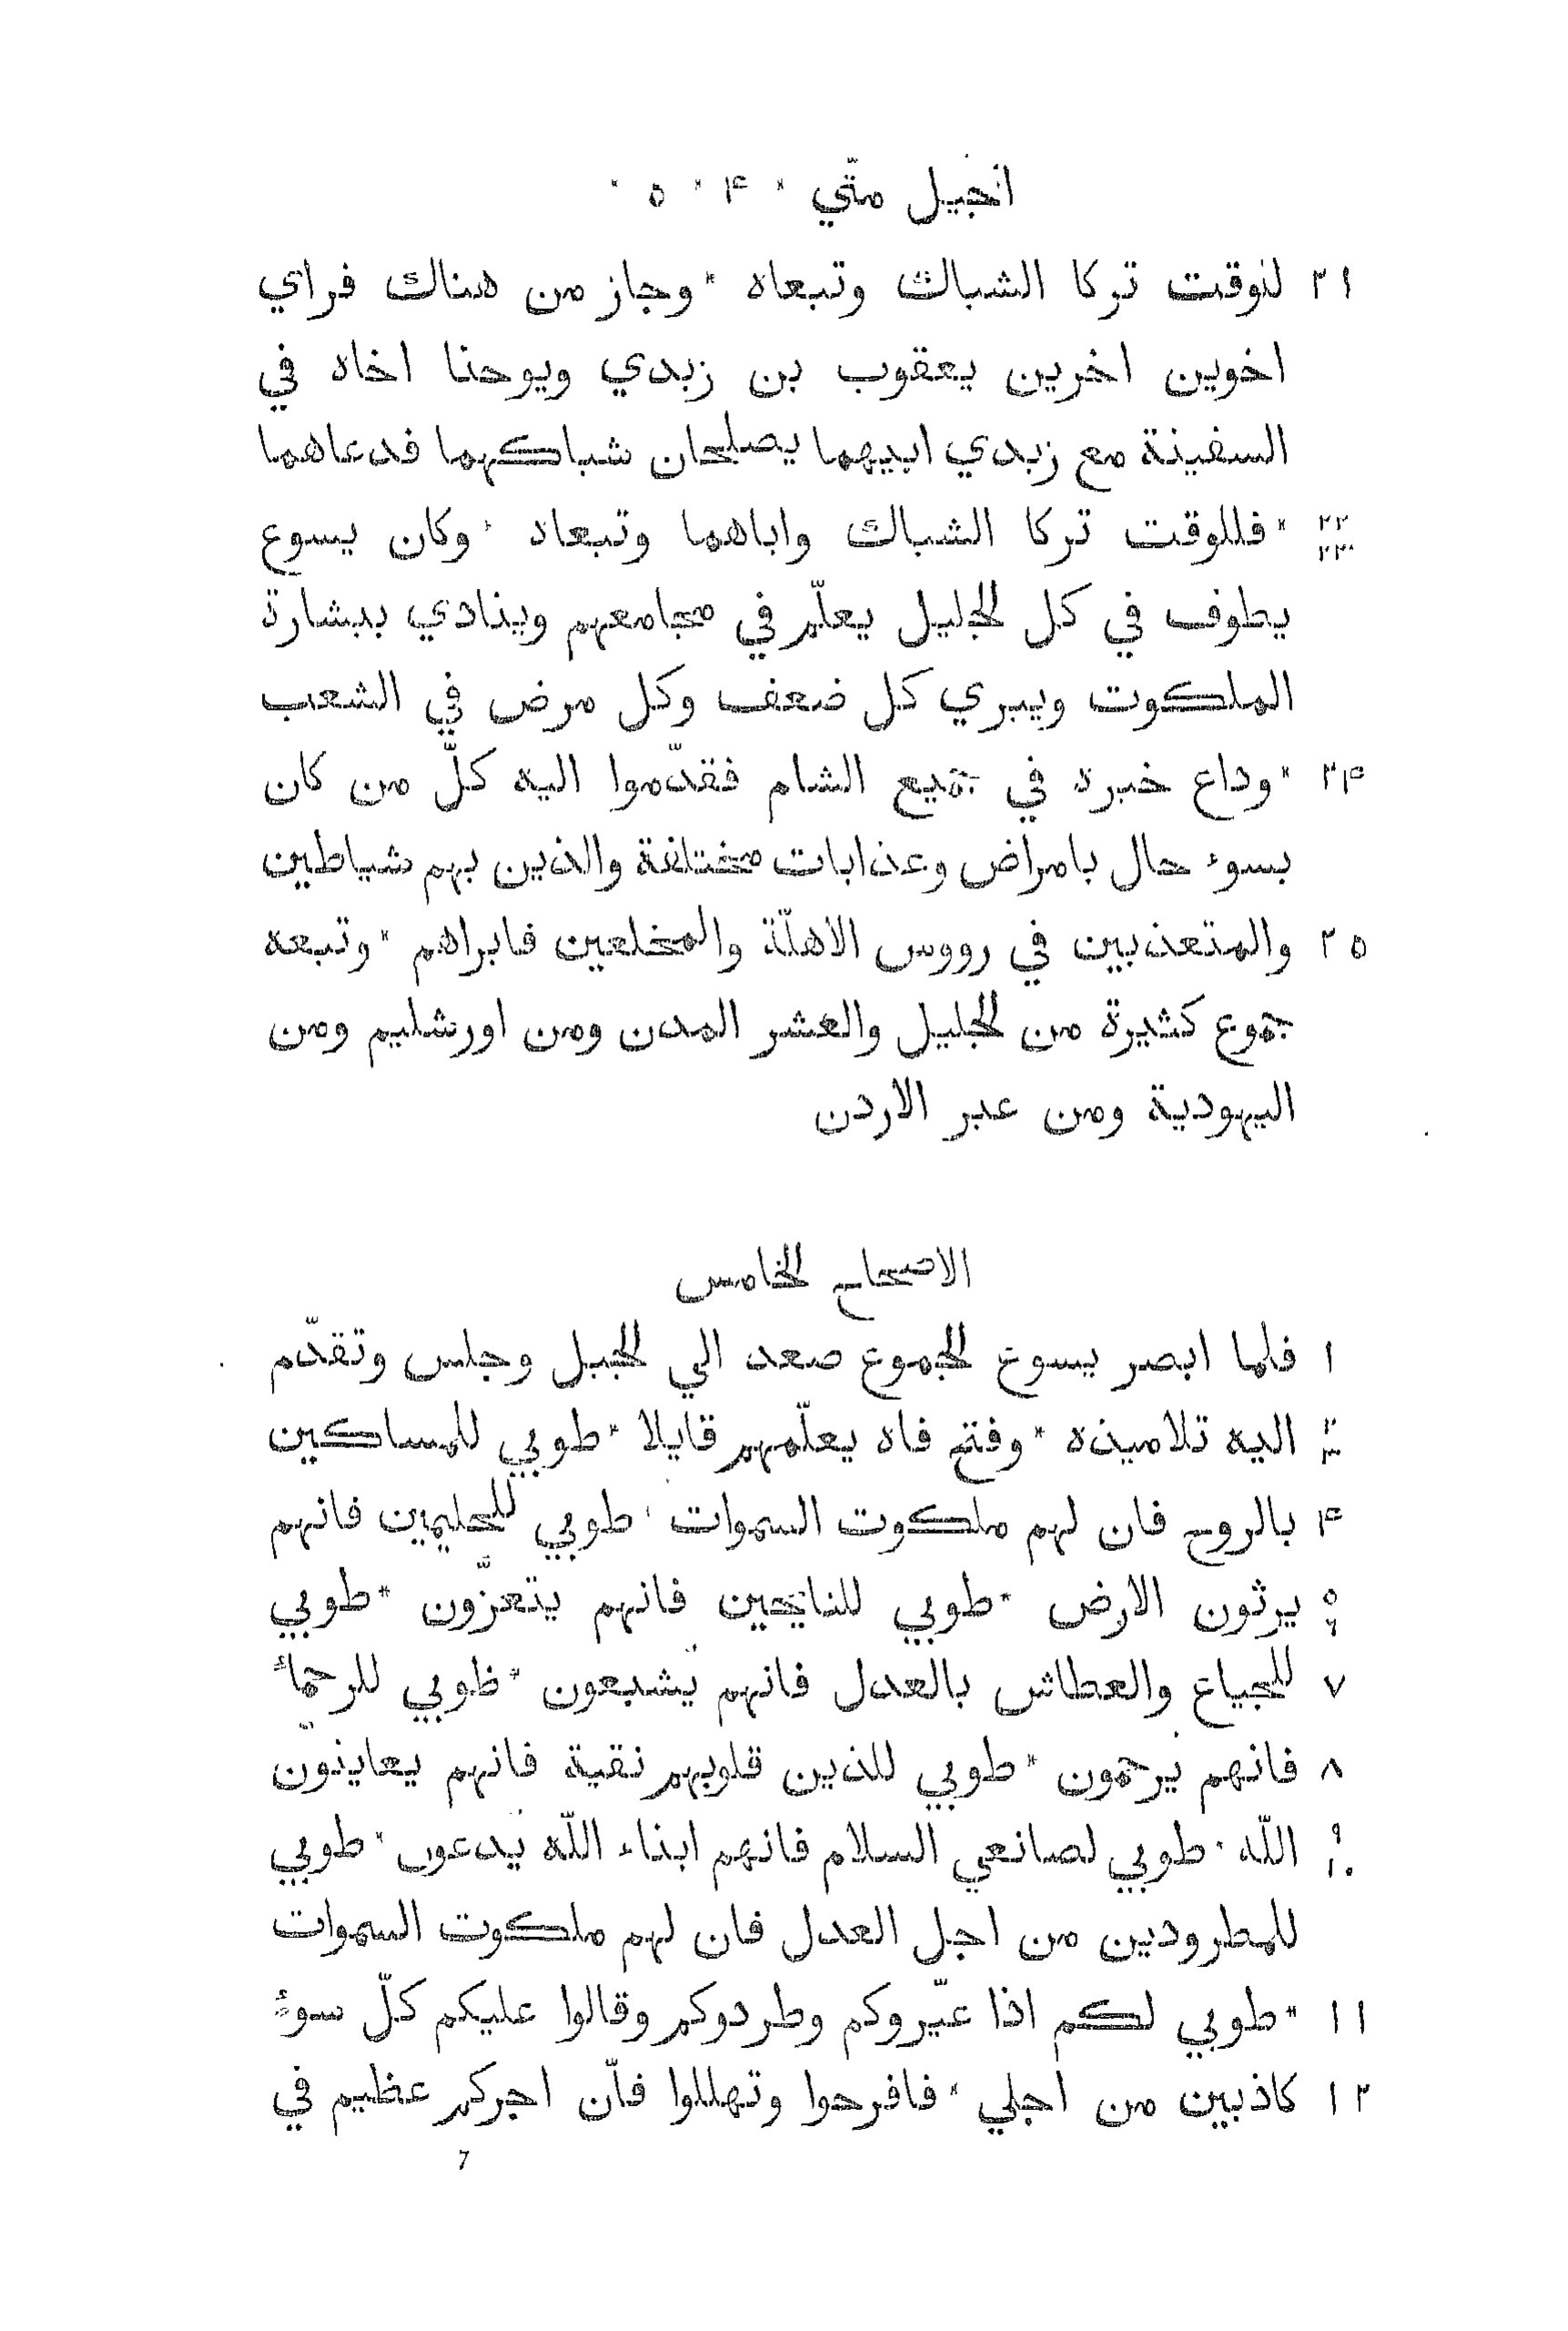 انجيل متّي * ۴ * ٥ *
٢١ لنوقت تركا الشباك وتبعاه * وجاز من هناك فراي
اخوين اخرين يعقوب بن زبدي ويوحنا اخاه في
السفينة مع زبدي ابيهما يصلحان شباكهما فدعاهما
٢٢ ٢٣ * فللوقت تركا الشباك واباهما وتبعاه * وكان يسوع
يطوف في كل الجليل يعلّم في مجامعهم وينادي ببشارة
الملكوت ويبري كل ضعف وكل مرض في الشعب
٢۴ * وداع خبره في جميع الشام فقدّموا اليه كلّ من كان
بسوء حال بامراض وعذابات مختلفة والذين بهم شياطين
٢٥ والمتعذبين في رووس الاهلّة والمخلعين فابراهم * وتبعه
جموع كثيرة من الجليل والعشر المدن ومن اورشليم ومن
اليهودية ومن عبر الاردن
الاصحاح الخامس
١ فلما ابصر يسوع الجموع صعد الي الجبل وجلس وتقدّم
٢ ٣ اليه تلاميذه * وفتح فاه يعلّمهم قايلا * طوبي للمساكين
۴ بالروح فان لهم ملكوت السموات * طوبي للحليمين فانهم
٥ ٦ يرثون الارض * طوبي للنايحين فانهم يتعزّون * طوبي
٧ للجياع والعطاش بالعدل فانهم يُشبعون * طوبي للرحمآء
٨ فانهم يُرحمون * طوبي للذين قلوبهم نقية فانهم يعاينون
٩ ١٠ اللّه * طوبي لصانعي السلام فانهم ابناء اللّه يُدعون * طوبي
للمطرودين من اجل العدل فان لهم ملكوت السموات
١١ * طوبي لكم اذا عيّروكم وطردوكم وقالوا عليكم كلّ سوءٍ
١٢ كاذبين من اجلي * فافرحوا وتهللوا فانّ اجركم عظيم في
7